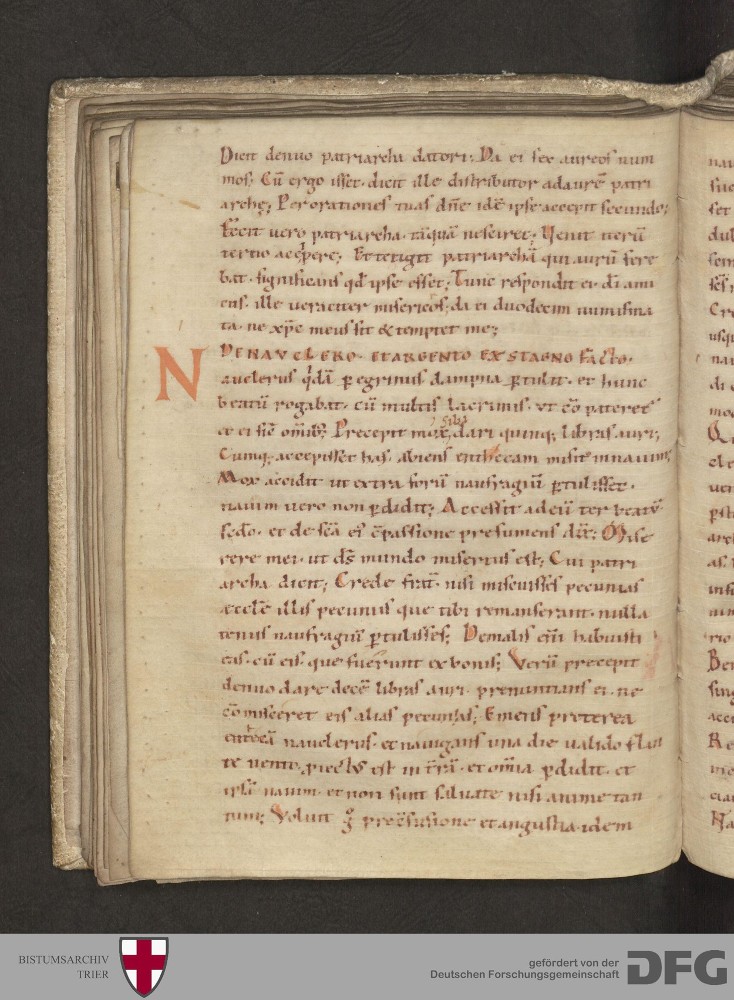 Dicit denuo patriarcha datori; Da ei sex aureos num
mos; Cū ergo isset. dicit ille distributor ad aurē patri
archę; Per orationes tuas dn̄e idē ipse accepit secundo;
Fecit uero patriarcha. tāquā nesciret; Venit uerū
tertio accipere; Et tetigit patriarchā qui aurū fere
bat. significans qđ ipse esset; Tunc respondit ei. dī ami
cus. ille ueraciter misericors; da ei duodecim numisma
ta. ne xp̄c meus sit & temptet me;
DE NAVCLERO. ET ARGENTO EX STAGNO FACTO.
Nauclerus qˈdā pegrinus dampna ptulit. et hunc
beatū rogabat. cū multis lacrimis. vt cō pateret
ei sic omib; Precepit mox ei sibi dari quinq; libras auri;
Cumq; accepisset has. abiens enthecam misit in nauim;
Mox accidit ut extra forū naufragiū ptulisset.
nauim uero non pdidit; Accessit ad eū ter beatū
sedo. et de sc̄a eī cōpassione presumens dix̄; Mise
rere mei. ut ds̄ mundo misertus est; Cui patri
archa dicit; Crede frat̄. nisi miscuisses pecunias
æcclē illis pecuniis que tibi remanserant. nulla
tenus naufragiū ptulisses; De malis enī habuisti
eas. cū eis que fuerunt ex bonis; Verū precepit
denuo dare decē libras auri. prenuntians ei. ne
cōmisceret eis alias pecunias; Emens preterea
enthecā nauclerus. et nauigans una die ualido flan
te uento. piectus est in trā. et omīa pdidit. et
ipsā nauim. et non sunt saluate nisi anime tan
tum; Voluit g̊ pre cōfusione et angustia. idem
BISTUMSARCHIV
TRIER
gefördert von der
Deutschen Forschungsgemeinschaft
DFG